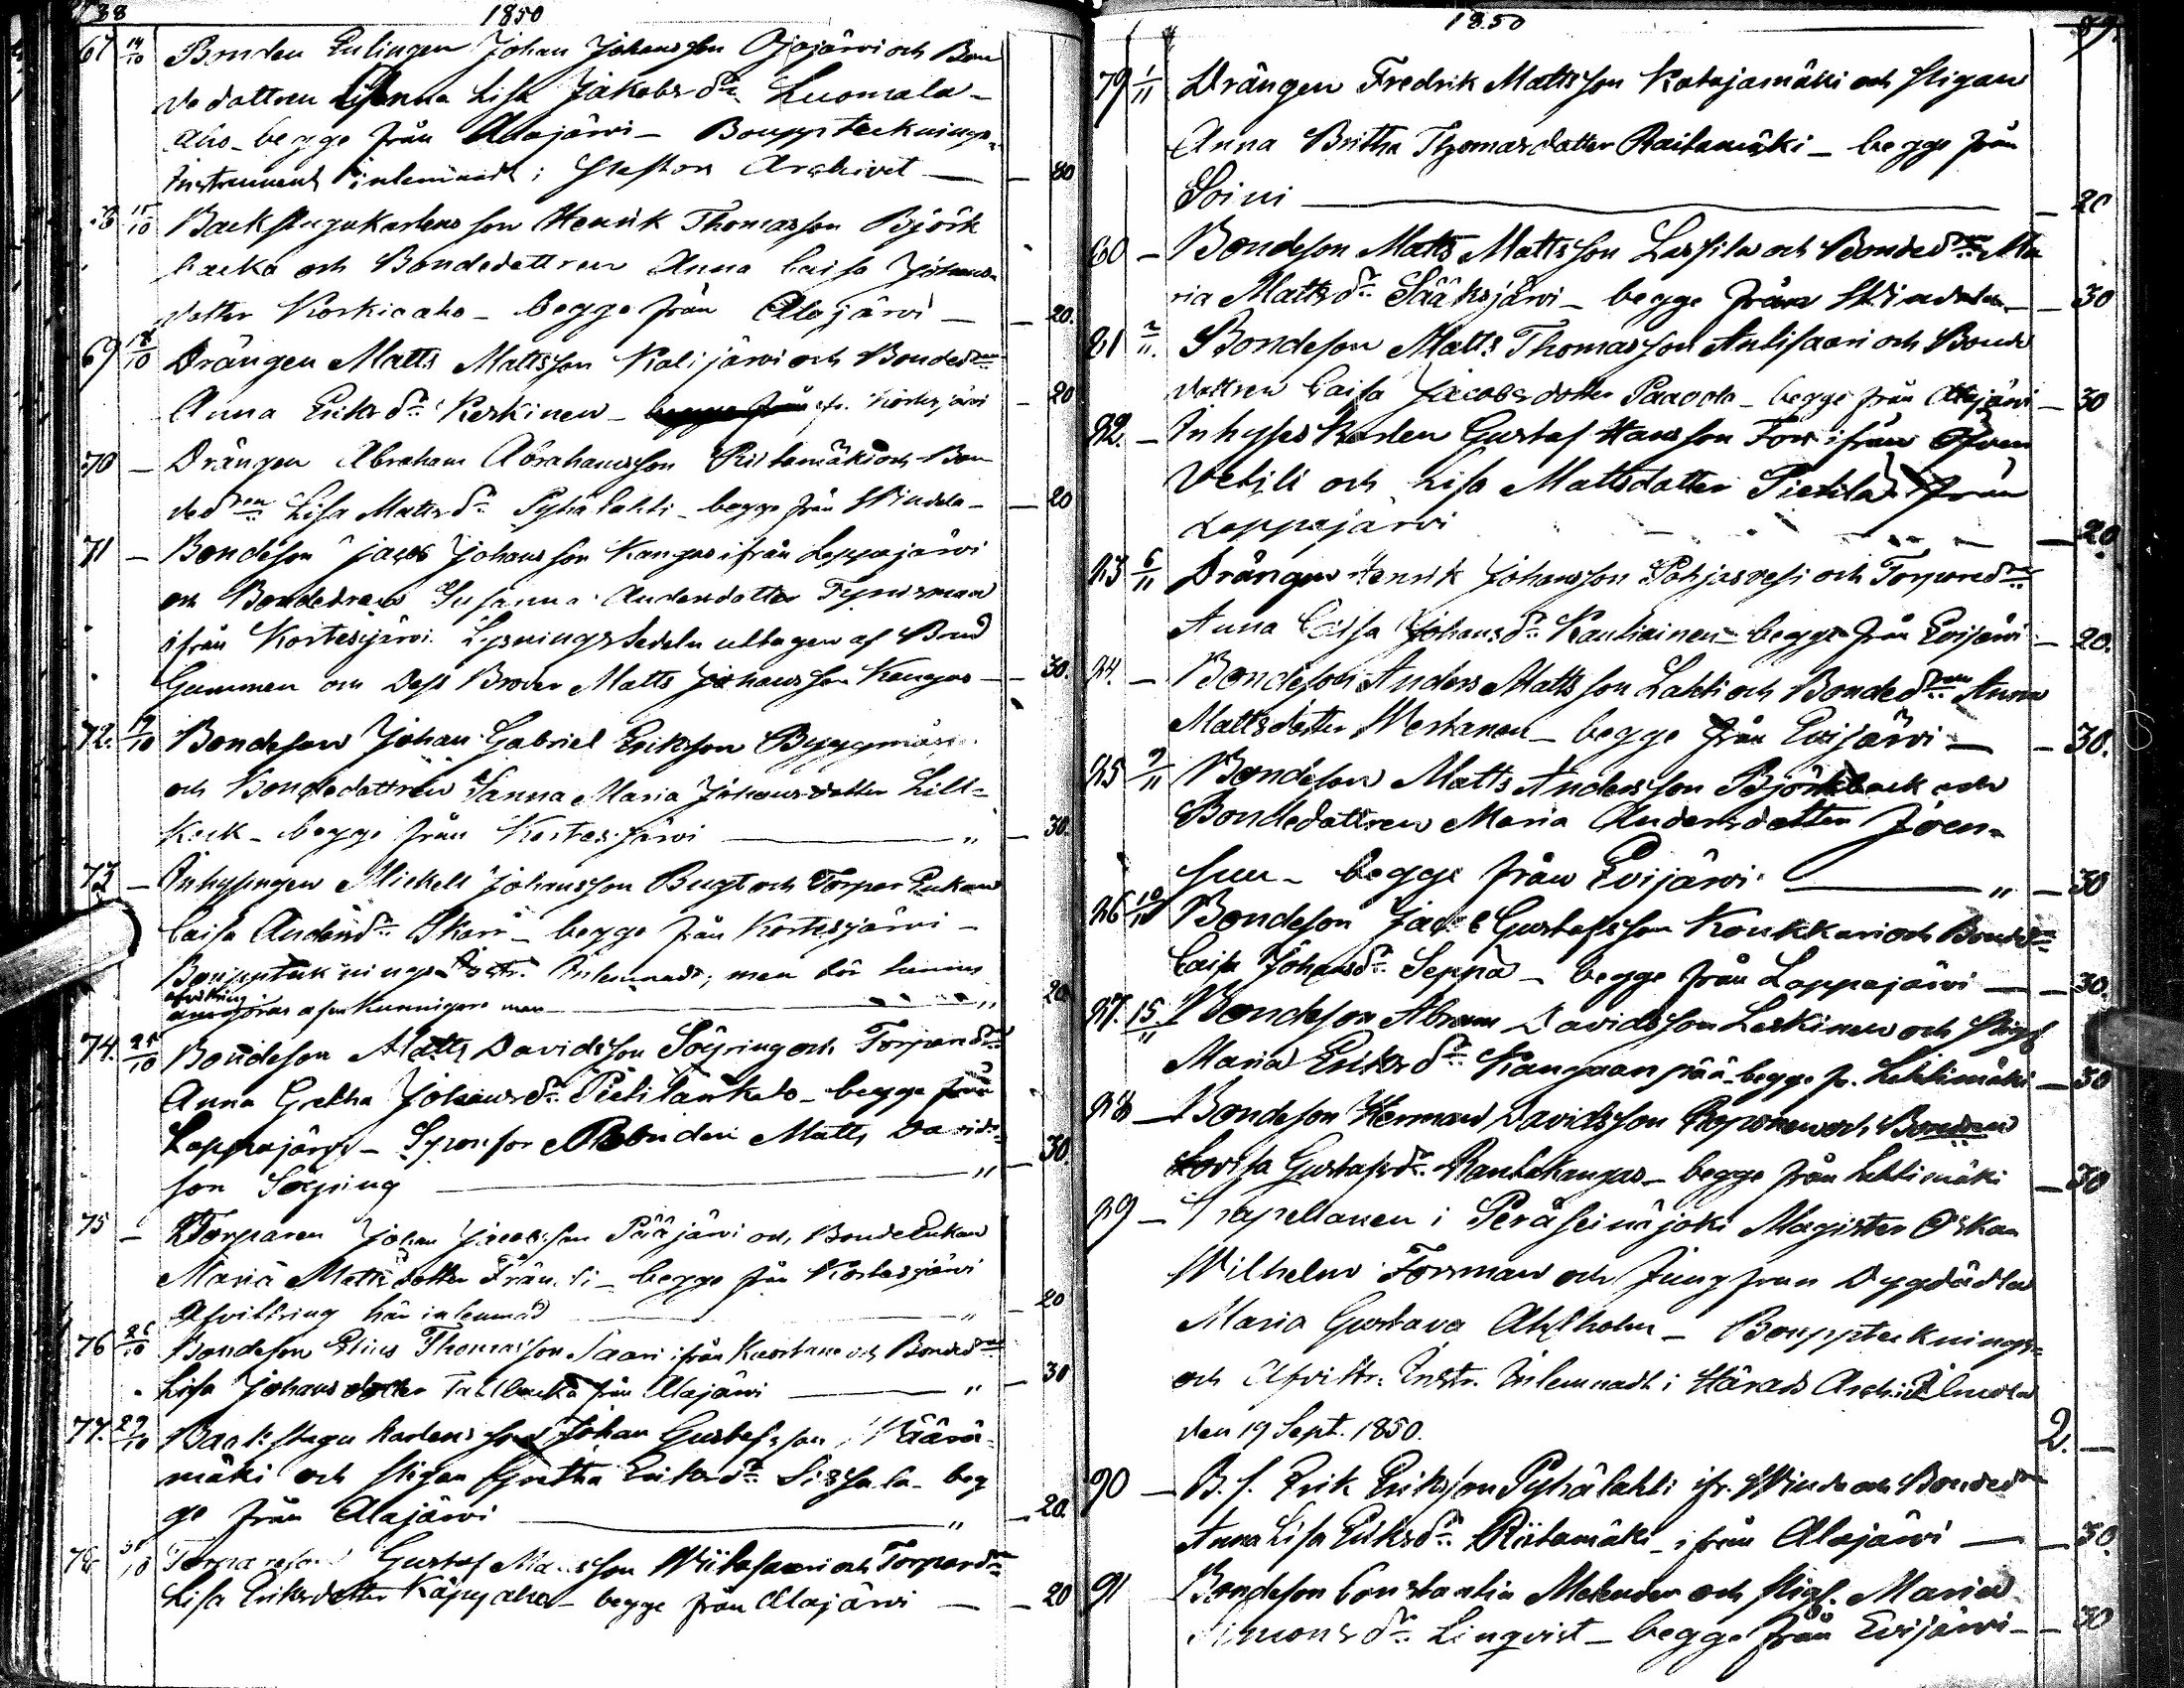 38
1850
67 14/10 Bonden Enlingen Johan Johansson Ojajärvi och Bon
dedattren Anna Lisa Jakobs dr Luomala-
aho - begge från Alajärvi - Bouppteknings-
Instrument inlemnadt i Archivet — 80
15/10 Backstugukarlens son Henrik Thomasson Björk
backa och Bondedattren Anna Caisa Johans
datter Korkiaaho - begge från Alajärvi — 20.
69 18/10 Drängen Matts Mattsson Kalijärvi och Bonded:n
Anna Eriks dr Kerkinen - fr. Kortesjärvi — 20
70 — Drängen Abraham Abrahamsson Riitamäki och Bon
dedren Lisa Matts dr Pyhälahti - begge från Windala — 20
71 — Bondeson Jacob Johansson Kangas ifrån Lappajärvi
och Bondedren Susanna Andersdatter
ifrån Kortesjärvi. Lysningssedeln uttagen af Brud
Gummen och Dess Broder Matts Johansson Kangas — 30.
72. 19/10 Bondeson Johan Gabriel Eriksson Byggmäs
och Bondedattren Sanna Maria Johansdatter Lill-
Kack - begge från Kortesjärvi — " — 30.
73 — Inhysingen Mickell Johansson Bugt och Torpar Enkan
Caisa Anders dr Skarr - begge från Kortesjärvi —
Bouppteknings Instr. Inlemnadt, men bör
afvittring
af kunnigare man — " 20
74. 25/10 Bondeson Matts Davidsson Söyring och Torpared:n
Anna Gretha Johans dr - begge från
Lappajärvi - Sponsor Bonden Matts Davids-
son Söyring — " — 30.
75 — Torparen Johan Jacobsson Pääjärvi och BondeEnkan
Maria Mattsdotter - begge från Kortesjärvi
Afvittring här inlemnad — " — 20
76 26/10 Bondeson Elias Thomasson Saari ifrån Kuortane och Bonded:n
Lisa Johansdotter Tallbacka från Alajärvi — " — 30
77. 29/10 Backstugukarlens son Johan Gustafsson Määrä-
mäki och pigan Gretha Eriks dr Sissala - beg
ge från Alajärvi — " — 20.
78 31/10 Torpareson Gustaf Mattsson Wiitasaari och Torpared:n
Lisa Eriksdotter Käpyaho - begge från Alajärvi — 20
1850
89.
79 1/11 Drängen Fredrik Mattsson Katajamäki och pigan
Anna Britha Thomasdatter Raitamäki - begge från
Soini — 20
80 — Bondeson Matts Mattsson Lassila och Bonded:n Ma
ria Matts dr Sääksjärvi - begge från Windala — 30
81 2/11. Bondeson Matts Thomasson Antisaari och Bonde
dattren Caisa Jacobsdotter Paavola - begge från Alajärvi — 30
82. — Inhyses Karlen Gustaf Hansson Fors ifrån Öfver
Vetili och Lisa Mattsdatter Pietilä från
Lappajärvi — 20
83 6/11 Drängen Henrik Johansson Pohjasvesi och Torpared:n
Anna Caisa Johans dr Kautiainen - begge från Evijärvi — 20.
84. — Bondeson Anders Mattsson Lahti och Bonded:n Anna
Mattsdotter Wertanen - begge från Evijärvi — 30.
85 9/11 Bondeson Matts Andersson Björkback och
Bondedattren Maria Andersdotter Joen-
suu - begge från Evijärvi — " — 30
86 10/11 Bondeson Jacob Gustafsson Koukkari och Bonded:n
Caisa Johans dr Seppä - begge från Lappajärvi — 30.
87. 15/11 Bondeson Abram Davidsson Leskinen och pig
Maria Eriks dr Kangaanpää - begge fr. Lehtimäki — 30
88 — Bondeson Herman Davidsson Roponen och Bondedren
Lovisa Gustafs dr Rantakangas - begge från Lehtimäki — 30
89 — Capellanen i Peräseinäjoki Magister Oskar
Wilhelm Forsman och Jungfrun Dygdädla
Maria Gustava Ahlholm - Bouppteknings-
och Afvittr. Instr. Inlemnadt i Härads Archivet
den 19 Sept. 1850. 2. —
90 — B. s. Erik Eriksson Pyhälahti ifr. Winda och Bonded:n
Anna Lisa Eriks dr Riitamäki - ifrån Alajärvi — 30.
91 Bondeson Constantin Melender och pig. Maria
Simons dr Linqvist - begge från Evijärvi — 30